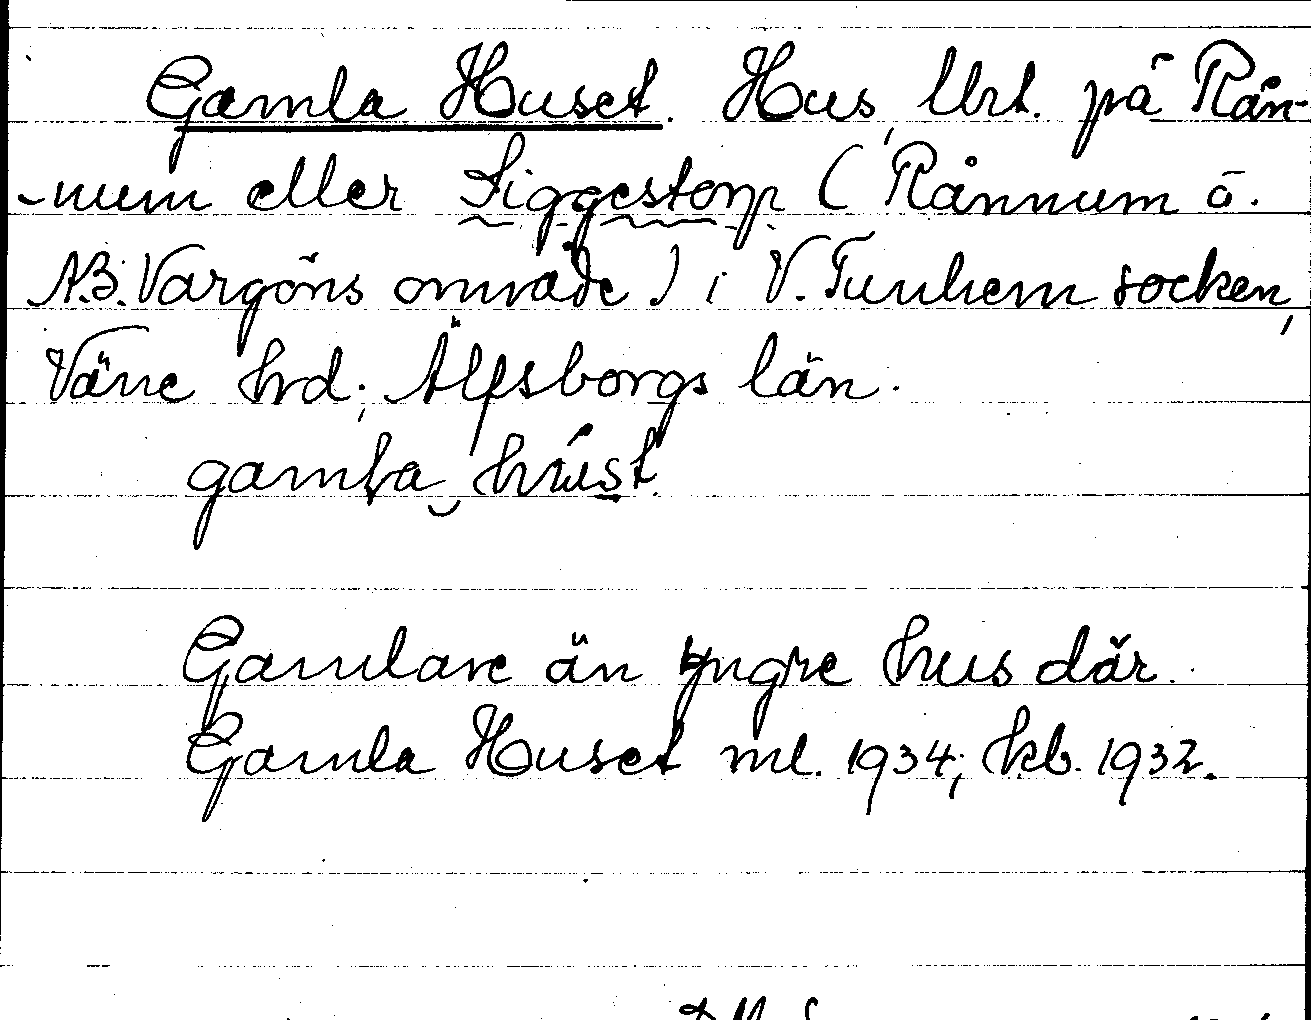 Gamla Huset. Hus, lbrt. på Rån-
-num eller Siggestorp (Rånnum ö.
N.B. Vargöns område) i V. Tunhem socken,
Väne hrd; Älfsborgs län.
gamla hust
Gamlare än yngre hus där.
Gamla Huset ml. 1934; kb. 1932.